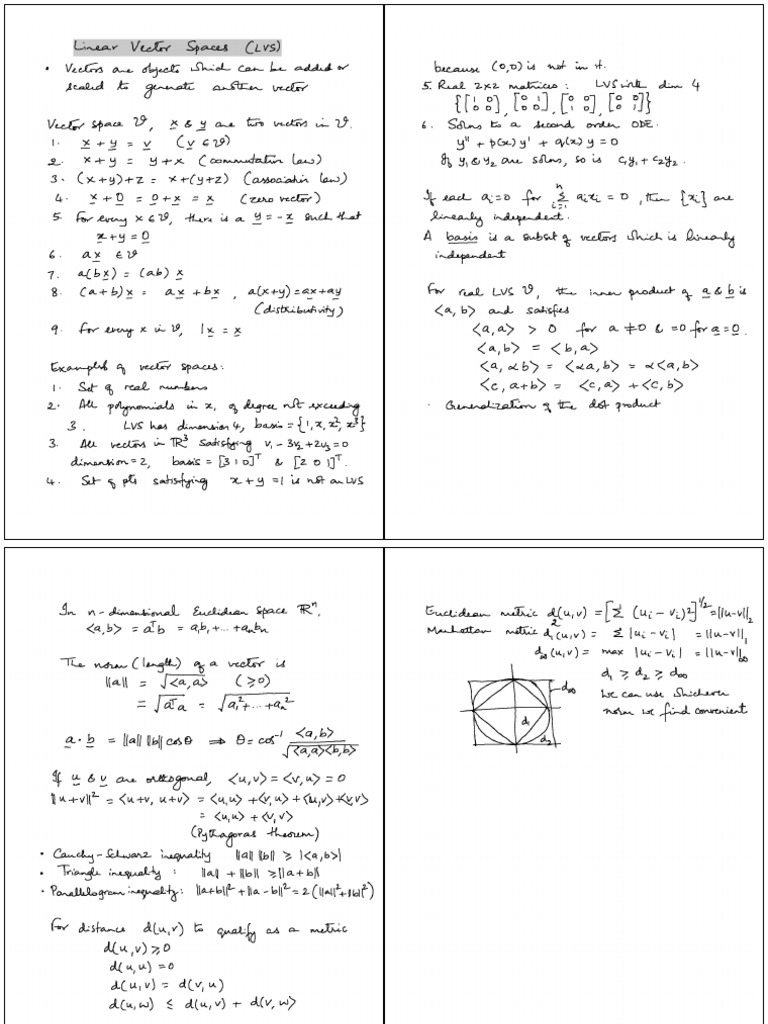 Linear Vector Spaces (LVS)
• Vectors are objects which can be added or
scaled to generate another vector
Vector space 𝒱, x & y are two vectors in 𝒱.
1. x + y = v (v ∈ 𝒱)
2. x + y = y + x (commutation law)
3. (x + y) + z = x + (y + z) (association law)
4. x + 0 = 0 + x = x (zero vector)
5. For every x ∈ 𝒱, there is a y = -x such that
x + y = 0
6. ax ∈ 𝒱
7. a(bx) = (ab) x
8. (a+b)x = ax + bx, a(x+y) = ax + ay
(distributivity)
9. For every x in 𝒱, 1x = x
Examples of vector spaces:
1. Set of real numbers
2. All polynomials in x, of degree not exceeding
3. LVS has dimension 4, basis = {1, x, x², x³}
3. All vectors in ℝ³ satisfying v₁ - 3v₂ + 2v₃ = 0
dimension = 2, basis = [3 1 0]ᵀ & [2 0 1]ᵀ.
4. Set of pts satisfying x + y = 1 is not an LVS
because (0,0) is not in it.
5. Real 2×2 matrices: LVS with dim 4
{[1 0; 0 0], [0 1; 0 0], [0 0; 1 0], [0 0; 0 1]}
6. Solns to a second order ODE.
y'' + p(x) y' + q(x) y = 0
If y₁ & y₂ are solns, so is c₁y₁ + c₂y₂.
If each aᵢ = 0 for Σⁿᵢ₌₁ aᵢxᵢ = 0, then {xᵢ} are
linearly independent.
A basis is a subset of vectors which is linearly
independent
For real LVS 𝒱, the inner product of a & b is
<a, b> and satisfies
<a, a> > 0 for a ≠ 0 & = 0 for a = 0.
<a, b> = <b, a>
<a, αb> = <αa, b> = α<a, b>
<c, a+b> = <c, a> + <c, b>
· Generalization of the dot product
In n-dimensional Euclidean space ℝⁿ,
<a, b> = aᵀb = a₁b₁ + ... + aₙbₙ
The norm (length) of a vector is
||a|| = √<a, a> (≥ 0)
= √aᵀa = √a₁² + ... + aₙ²
a · b = ||a|| ||b|| cos θ ⇒ θ = cos⁻¹ <a, b> / √<a,a><b,b>
If u & v are orthogonal, <u, v> = <v, u> = 0
||u+v||² = <u+v, u+v> = <u,u> + <v,u> + <u,v> + <v,v>
= <u,u> + <v,v>
(Pythagoras theorem)
• Cauchy-Schwarz inequality ||a|| ||b|| ≥ |<a, b>|
• Triangle inequality: ||a|| + ||b|| ≥ ||a+b||
• Parallelogram inequality: ||a+b||² + ||a-b||² = 2(||a||² + ||b||²)
For distance d(u,v) to qualify as a metric
d(u,v) ≥ 0
d(u,u) = 0
d(u,v) = d(v,u)
d(u,w) ≤ d(u,v) + d(v,w)
Euclidean metric d₂(u,v) = [Σ (uᵢ - vᵢ)²]^1/2 = ||u-v||₂
Manhattan metric d₁(u,v) = Σ |uᵢ - vᵢ| = ||u-v||₁
d∞(u,v) = max |uᵢ - vᵢ| = ||u-v||∞
d₁ ≥ d₂ ≥ d∞
We can use whichever
norm we find convenient
d∞
d₁
d₂